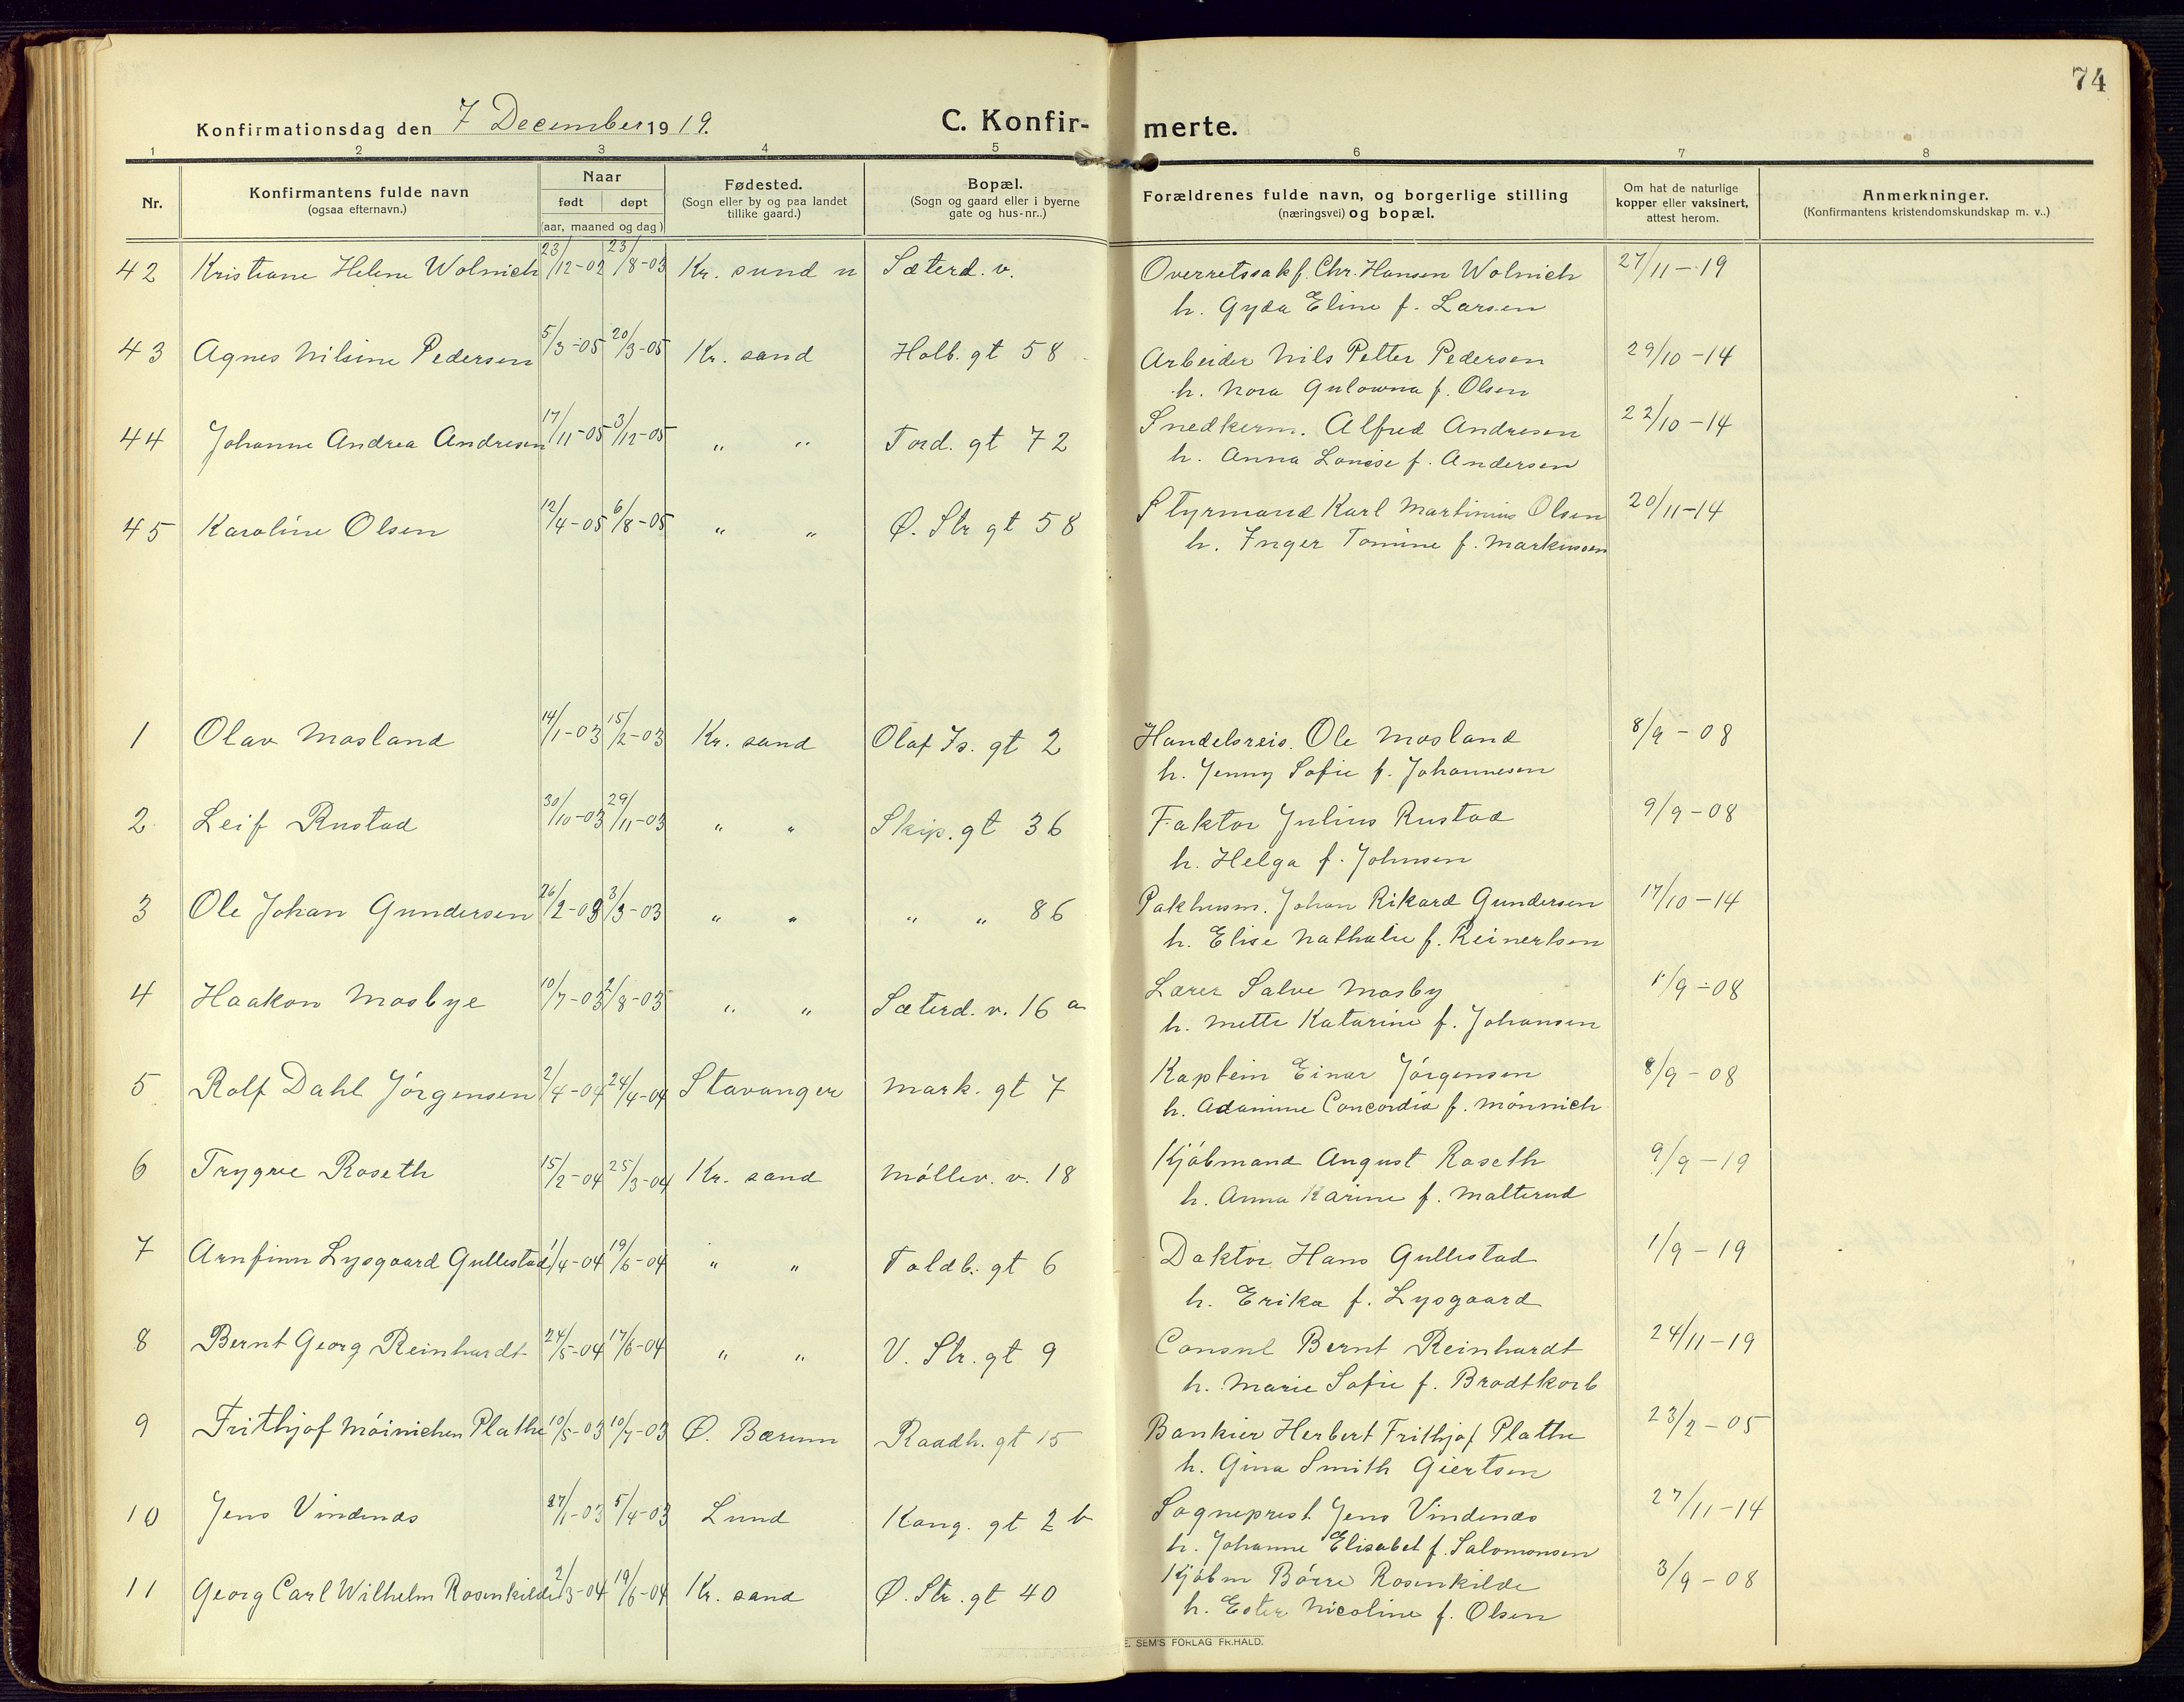 74
Konfirmationsdag den 7 December 1919.
C. Konfir- merte.
1 2 3 4 5 6 7 8
Nr.
Konfirmantens fulde navn
(ogsaa efternavn.)
Naar
født døpt
(aar, maaned og dag)
Fødested.
(Sogn eller by og paa landet
tillike gaard.)
Bopæl.
(Sogn og gaard eller i byerne
gate og hus-nr..)
Forældrenes fulde navn, og borgerlige stilling
(næringsvei) og bopæl.
Om hat de naturlige
kopper eller vaksinert,
attest herom.
Anmerkninger.
(Konfirmantens kristendomskundskap m. v..)
42 Kristiane Helene Wolnich 23/12-02 23/8-03 Kr. sund n Sæterd. v. Overretssakf. Chr. Hansen Wolnich 27/11-19
h. Gyda Eline f. Larsen
43 Agnes Nilsine Pedersen 5/3-05 20/3-05 Kr. sand Holb. gt 58 Arbeider Nils Petter Pedersen 29/10-14
h. Nora Gulowna f. Olsen
44 Johanne Andrea Andresen 17/11-05 3/12-05 " " Tord. gt 72 Snedkerm. Alfred Andresen 22/10-14
h. Anna Louise f. Andersen
45 Karoline Olsen 12/4-05 6/8-05 " " Ø. Str gt 58 Styrmand Karl Martinius Olsen 20/11-14
h. Inger Tomine f. Markussen
1 Olav Mosland 14/1-03 15/2-03 Kr. sand Olaf Ts. gt 2 Handelsreis. Ole Mosland 8/9-08
h. Jenny Sofie f. Johannesen
2 Leif Rustad 30/10-03 29/11-03 " " Skip. gt 36 Faktor Julius Rustad 9/9-08
h. Helga f. Johnsen
3 Ole Johan Gundersen 26/2-03 3/3-03 " " " " 86 Pakhusm. Johan Rikard Gundersen 17/10-14
h. Elise Nathalie f. Reinertsen
4 Haakon Mosbye 10/7-03 2/8-03 " " Sæterd. v. 16 a Lærer Salve Mosby 1/9-08
h. Mette Katarine f. Johansen
5 Rolf Dahl Jörgensen 2/4-04 24/4-04 Stavanger Mark. gt 7 Kaptein Einar Jörgensen 8/9-08
h. Adamine Concordia f. Mönnich
6 Trygve Roseth 15/2-04 25/3-04 Kr. sand Möllev. v. 18 Kjöbmand August Roseth 9/9-19
h. Anna Karine f. Malterud
7 Arnfinn Lysgaard Gullestad 1/4-04 19/6-04 " " Toldb. gt 6 Doktor Hans Gullestad 1/9-19
h. Erika f. Lysgaard
8 Bernt Georg Reinhardt 24/5-04 17/6-04 " " V. Str. gt 9 Consul Bernt Reinhardt 24/11-19
h. Marie Sofie f. Brodtkorb
9 Frithjof Möinichen Plathe 10/5-03 10/7-03 Ø. Bærum Raadh. gt 15 Bankier Herbert Frithjof Plathe 23/2-05
h. Gina Smith Giertsen
10 Jens Vindenes 27/1-03 5/4-03 Lund Kong. gt 2 b Sogneprest Jens Vindenes 27/11-14
h. Johanne Elisabet f. Salomonsen
11 Georg Carl Wilhelm Rosenkilde 2/3-04 19/6-04 Kr. sand Ø. Str. gt 40 Kjöbm Börre Rosenkilde 3/9-08
h. Ester Nicoline f. Olsen
E. SEM'S FORLAG FR.HALD.